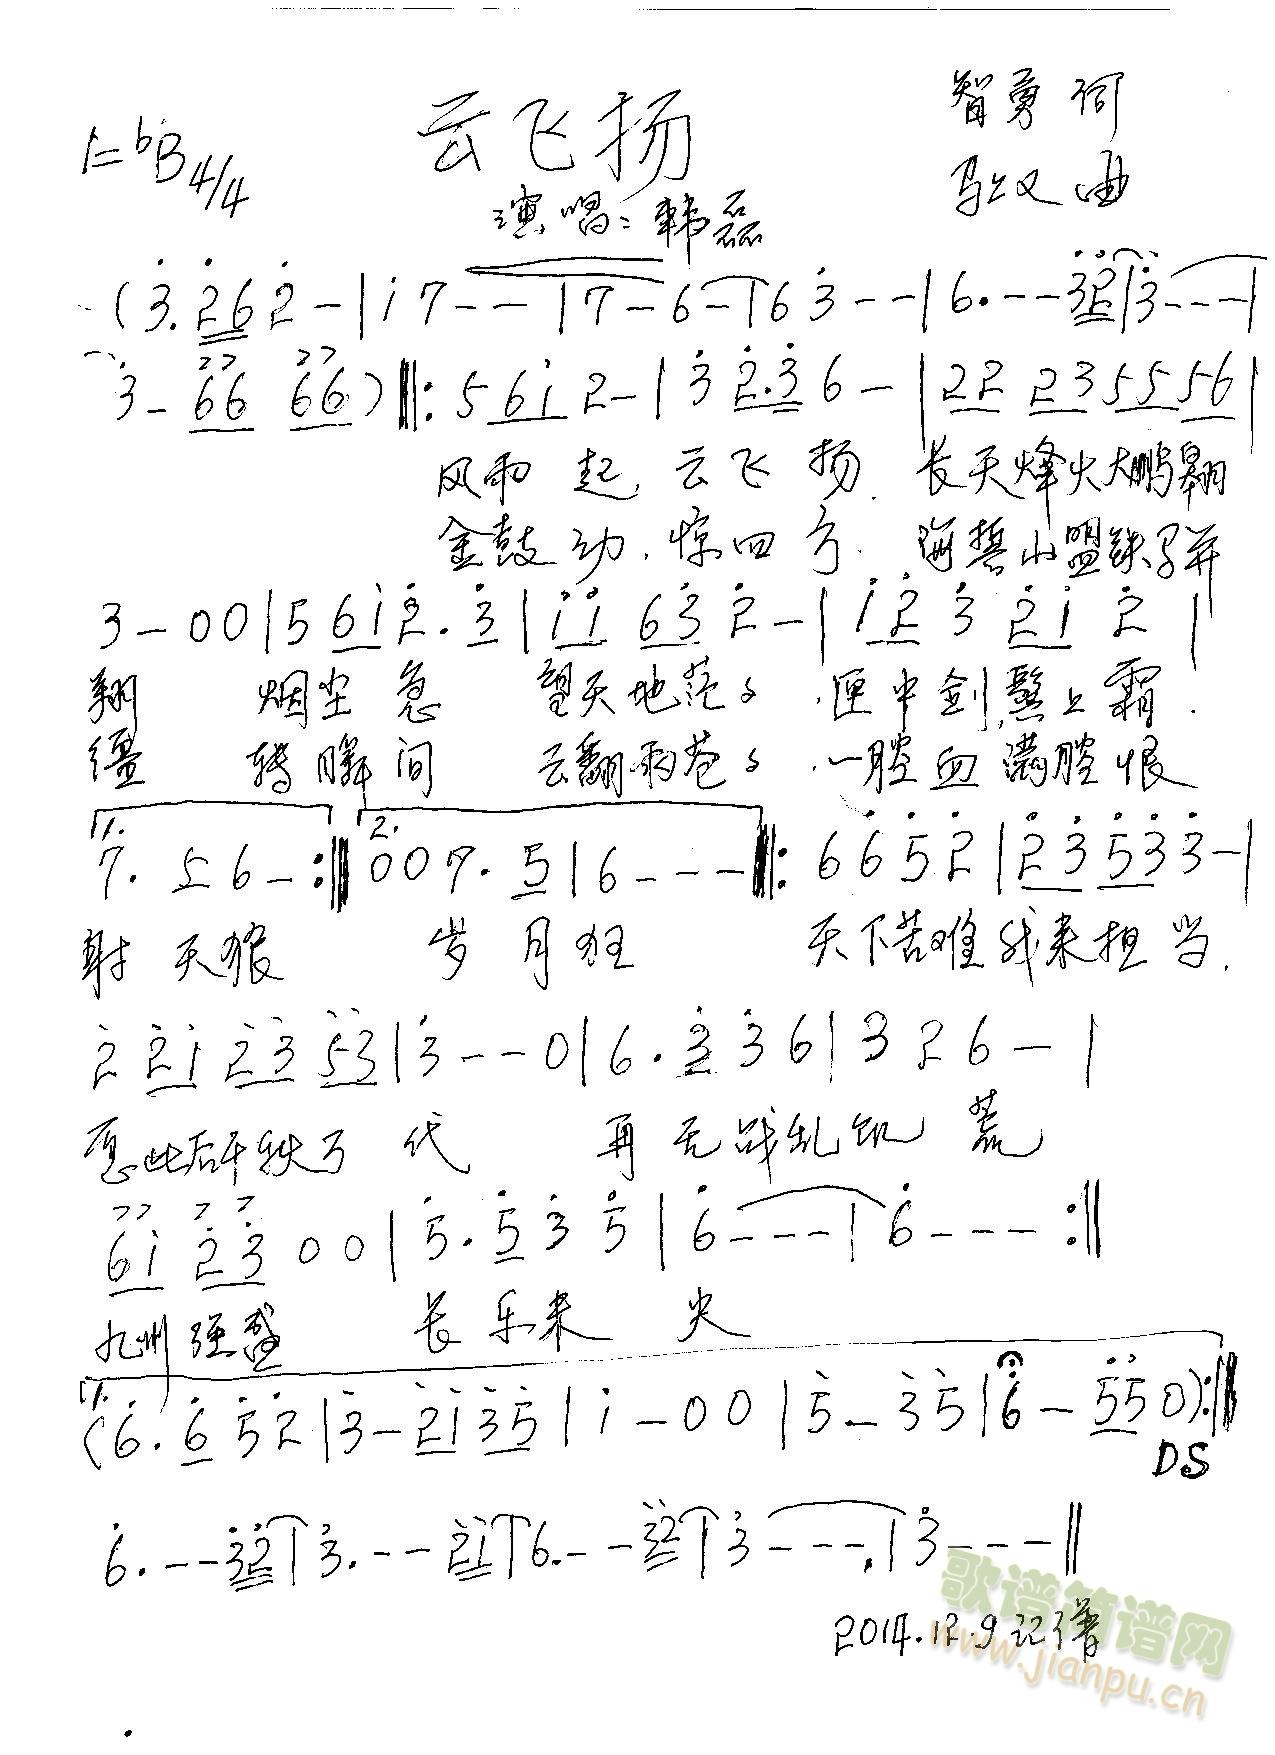 云飞扬
智勇 词
1=bB 4/4
马上又 曲
演唱:韩磊
(3. 2 6 2 - | i 7 - - | 7 - 6 - | 6 3 - - | 6. - - 3 2 | 3 - - - |
3 - 6 6 6 6 ) ‖: 5 6 i 2 - | 3 2. 3 6 - | 2 2 2 3 5 5 5 6 |
风雨起, 云飞扬. 长天烽火大鹏翱
金鼓动. 惊四方. 海誓山盟铁马并
3 - 0 0 | 5 6 i 2. 3 | i i 6 3 2 - | i 2 3 2 i 2 |
翔 烟尘急 望天地茫々. 匣中剑,鬓上霜.
缰 转瞬间 云翻雨苍々. 一腔血满腔恨
1. 2.
7. 5 6 - :‖ 0 0 7. 5 | 6 - - - ‖: 6 6 5 2 | 2 3 5 3 3 - |
射天狼 岁月狂 天下苦难我来担当.
2 2 i 2 3 5 3 | 3 - - 0 | 6. 3 3 6 | 3 2 6 - |
愿此后千秋万代 再无战乱饥荒
6 i 2 3 0 0 | 5. 5 3 5 | 6 - - - | 6 - - - :‖
九州强盛 长乐未央
1.
(6. 6 5 2 | 3 - 2 i 3 5 | i - 0 0 | 5 - 3 5 | 6 - 5 5 0):‖
DS
6. - - 3 2 | 3. - - 2 i | 6. - - 3 2 | 3 - - -. | 3 - - - ‖
2014.12.9记谱
歌谱简谱网
www.jianpu.cn